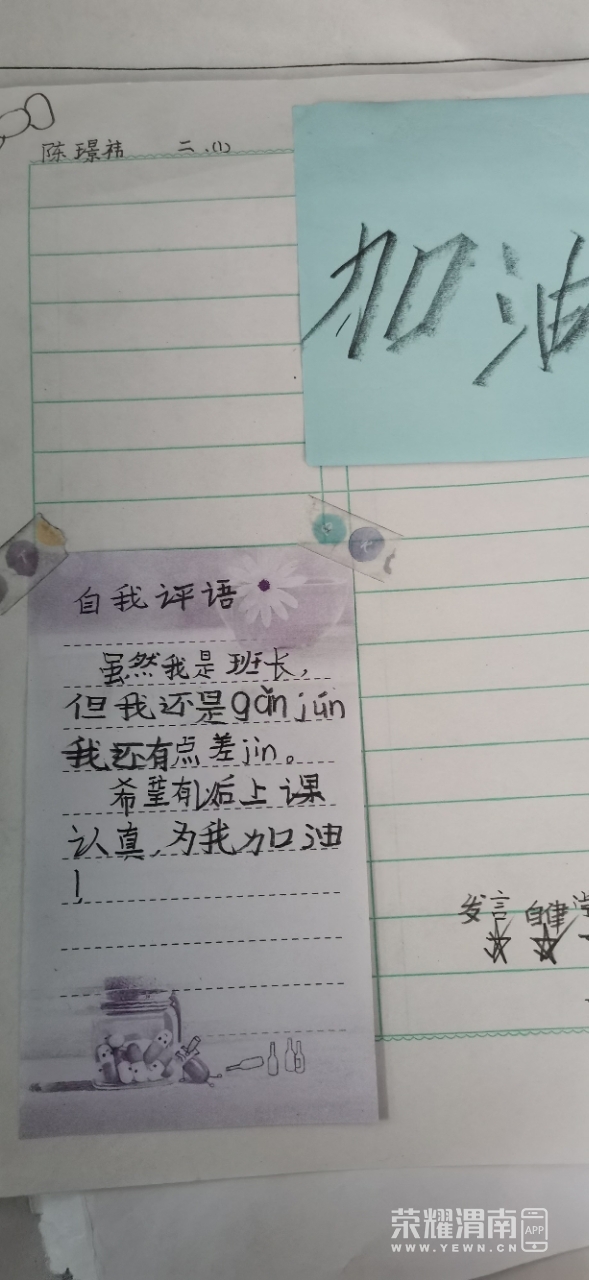 陈璟祎 二.(1)
加油
自我评语
虽然我是班长,
但我还是gǎn jún
我还有点差jìn。
希望有以后上课
认真,为我加油
!
发言 自律
荣耀渭南 APP
WWW.YEWN.CN